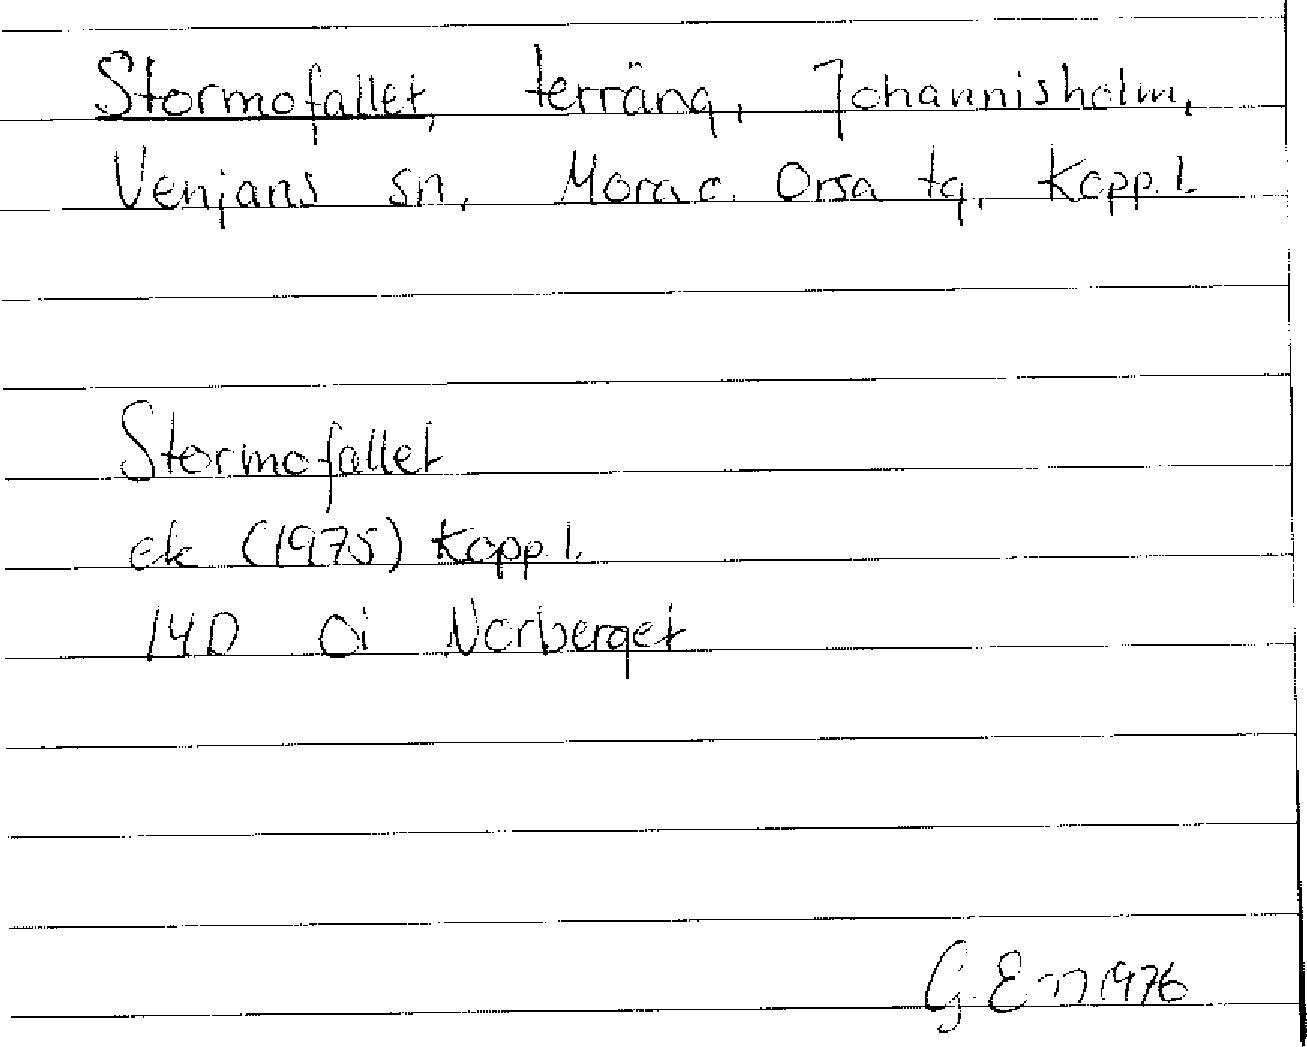 Stormofallet, terräng, Johannisholm,
Venjans sn, Mora o. Orsa tg, Kopp. l.
Stormofallet
ek (1975) Kopp. l.
14D 0i Norberget
G. E-n 1976